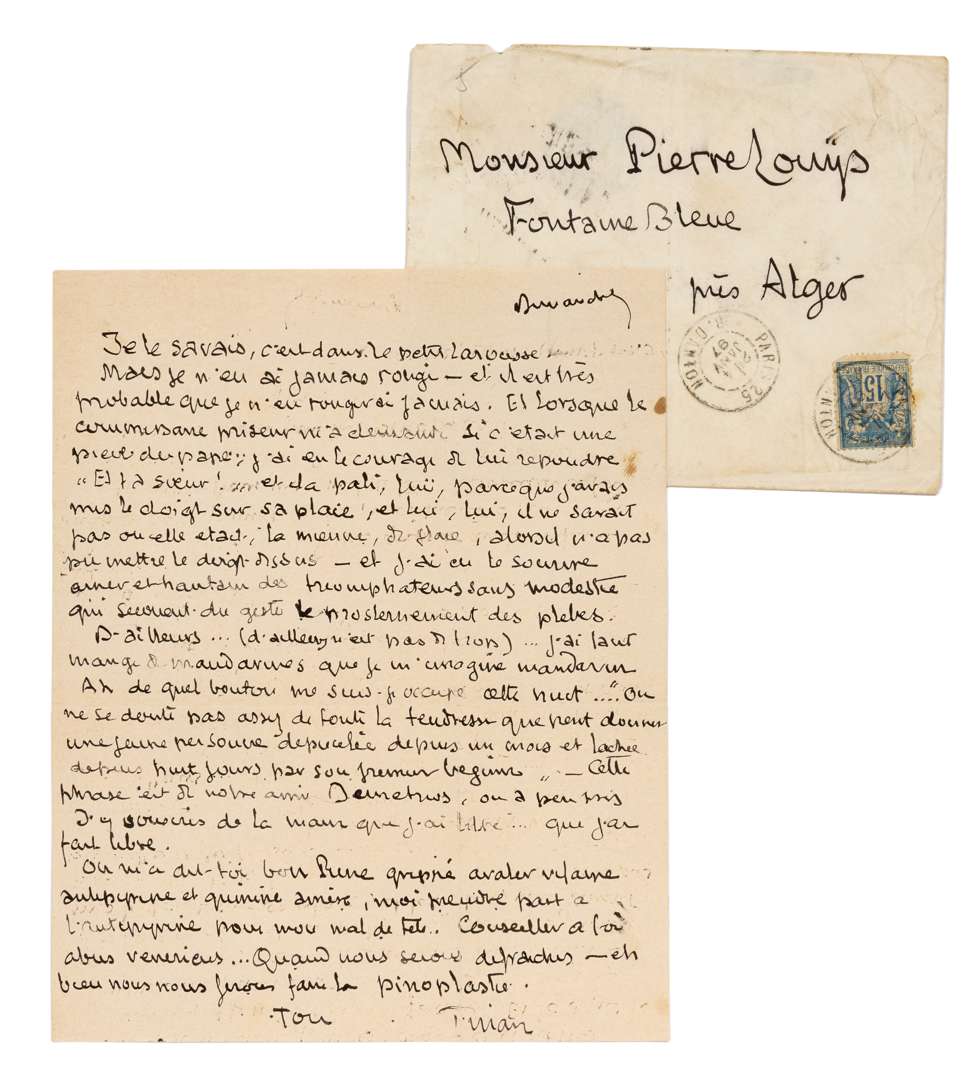 Monsieur Pierre Louÿs
Fontaine Bleue
près Alger
PARIS 25
R. DANTON
JANV
97
15
Je le savais, c'est dans le petit Larousse
Mais je n'en ai jamais rougi — et il est très
probable que je n'en rougirai jamais. Et lorsque le
commissaire priseur m'a demandé si c'était une
pièce du pape, j'ai eu le courage de lui répondre
"Et ta sœur! et il a pali, lui, parceque j'avais
mis le doigt sur sa plaie, et lui, lui, il ne savait
pas où elle était, la mienne, de plaie, alors il n'a pas
pu mettre le doigt dessus — et j'ai eu le sourire
amer et hautain des triomphateurs sans modestie
qui secouent du geste le prosternement des plèbes.
D'ailleurs ... (d'ailleurs n'est pas de trop) ... j'ai tant
mangé de mandarines que je m'imagine mandarin
Ah de quel bouton me suis-je occupé cette nuit ...." On
ne se doute pas assez de toute la tendresse que peut donner
une jeune personne dépucelée depuis un mois et lachée
depuis huit jours par son premier béguin " — Cette
phrase est de notre ami Demetrios, ou a peu près
J'y souscris de la main que j'ai libre ... que j'ai
fait libre.
On m'a dit - toi bon Pierre grippé avaler vilaine
antipyrine et quinine amère, moi prendre part a
l'antipyrine pour mon mal de tête. Conseiller a toi
abus vénériens ... Quand nous serons défraichis — eh
bien nous nous ferons faire la pinoplastie.
Ton Tinan